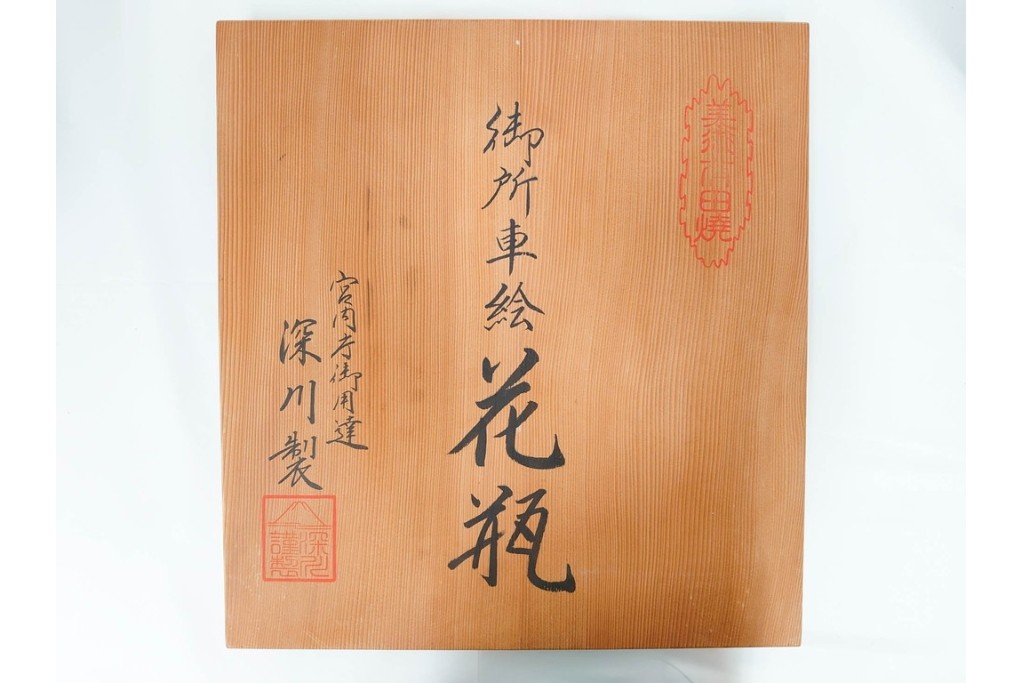 美術有田燒
御所車絵花瓶
宮内庁御用達
深川製
深川
謹製